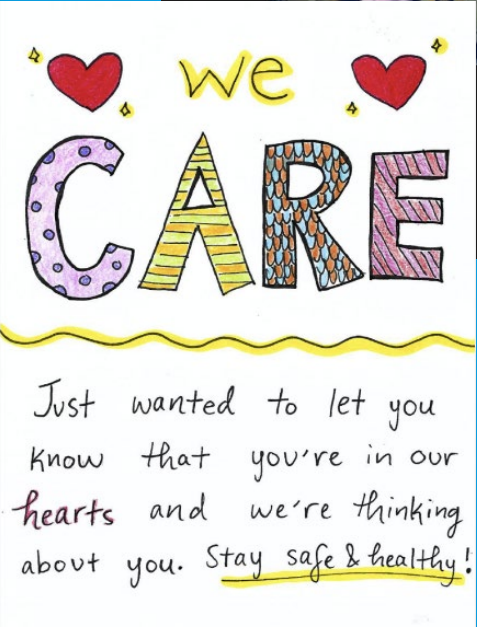 we
CARE
Just wanted to let you
know that you're in our
hearts and we're thinking
about you. Stay safe & healthy!